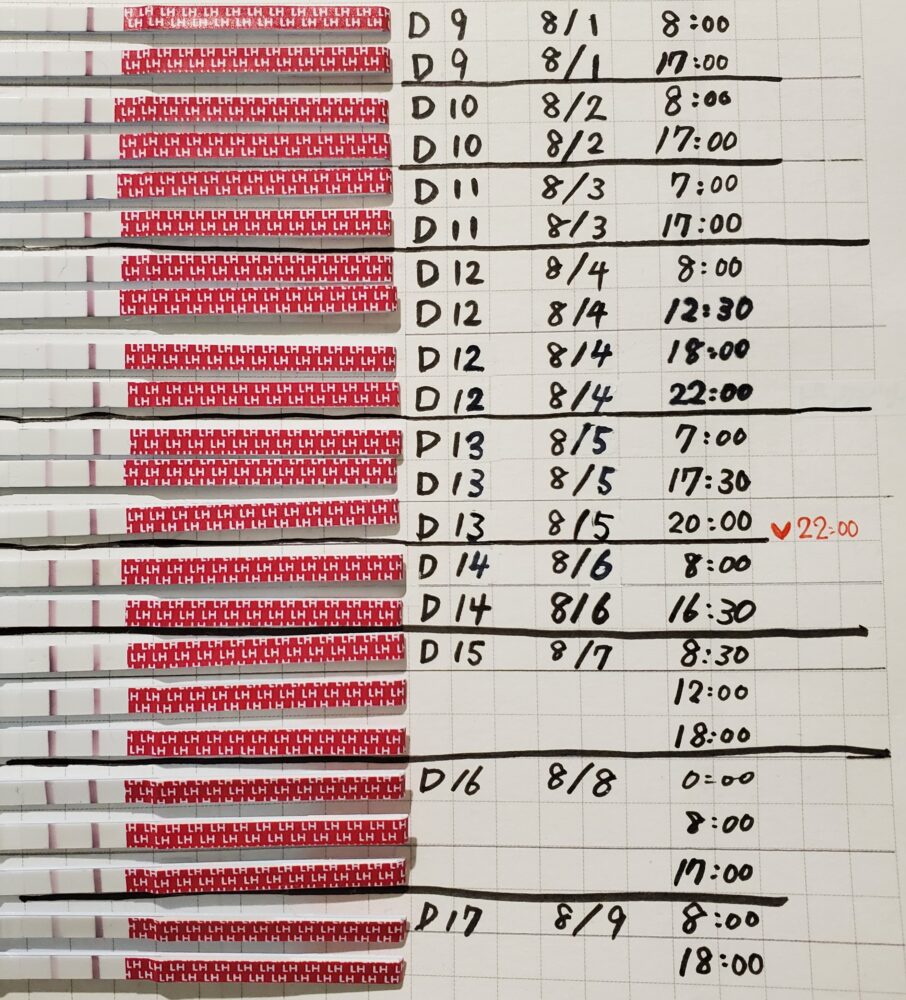 LH D 9 8/1 8:00
LH D 9 8/1 17:00
LH D 10 8/2 8:00
LH D 10 8/2 17:00
LH D 11 8/3 7:00
LH D 11 8/3 17:00
LH D 12 8/4 8:00
LH D 12 8/4 12:30
LH D 12 8/4 18:00
LH D 12 8/4 22:00
LH D 13 8/5 7:00
LH D 13 8/5 17:30
LH D 13 8/5 20:00 ♥22:00
LH D 14 8/6 8:00
LH D 14 8/6 16:30
LH D 15 8/7 8:30
LH 12:00
LH 18:00
LH D 16 8/8 0:00
LH 8:00
LH 17:00
LH D 17 8/9 8:00
LH 18:00